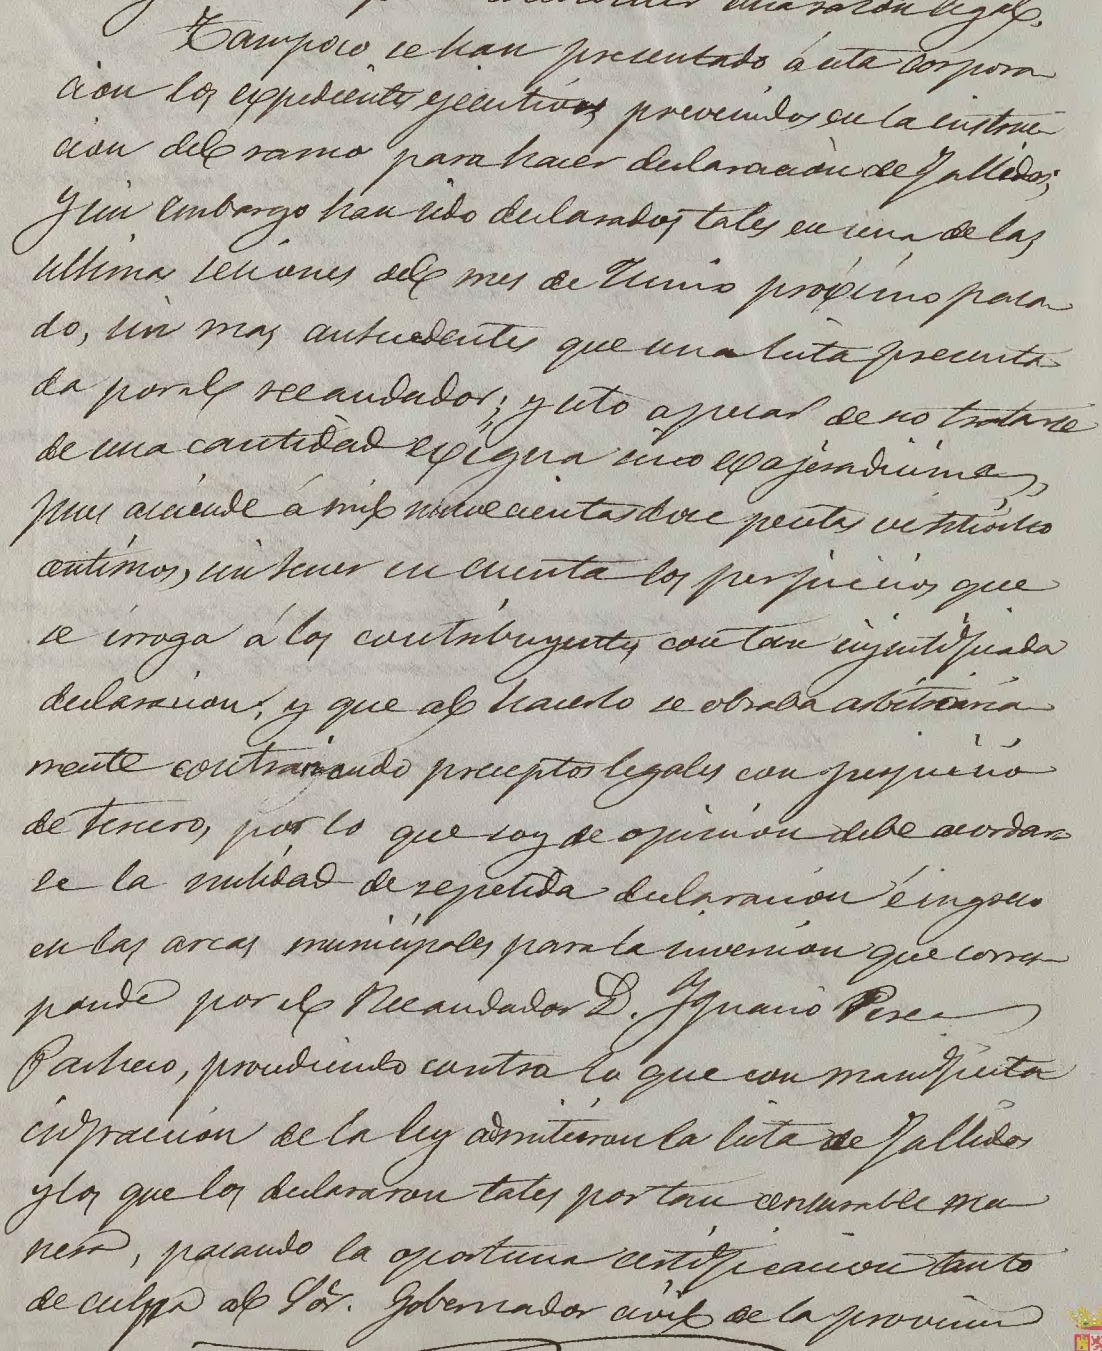 una razon legal.
Tampoco se han presentado á esta corpora
cion los expedientes ejecutivos prevenidos en la instruc
cion del ramo para hacer declaracion de fallidos;
y sin embargo han sido declarados tales en una de las
ultimas sesiones del mes de Junio próximo pasa
do, sin mas antecedentes que una lista presenta
da por el recaudador; y esto apesar de no tratarse
de una cantidad exigua sino exajeradisima,
pues asciende á mil novecientas doce pesetas veintiocho
centimos, sin tener en cuenta los perjuicios que
se irroga á los contribuyentes con tan injustificada
declaracion; y que al hacerlo se obraba arbitraria
mente contrariando preceptos legales con perjuicio
de tercero, por lo que soy de opinion debe acordar
se la nulidad de repetida declaracion é ingreso
en las arcas municipales para la inversion que corres
ponde por el Recaudador D. Ignacio Perea
Pacheco, procediendo contra lo que con manifiesta
infraccion de la ley admitieron la lista de fallidos
y los que los declararon tales por tan censurable ma
nera, pasando la oportuna certificacion tanto
de culpa al Sõr. Gobernador civil de la provincia